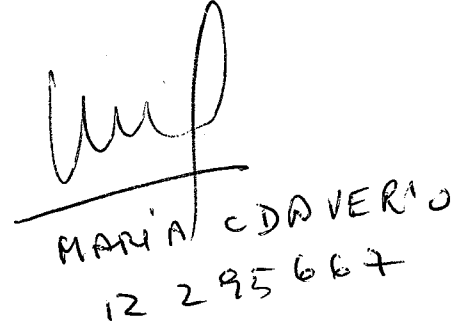 MARIA C DAVERIO
12 295 667